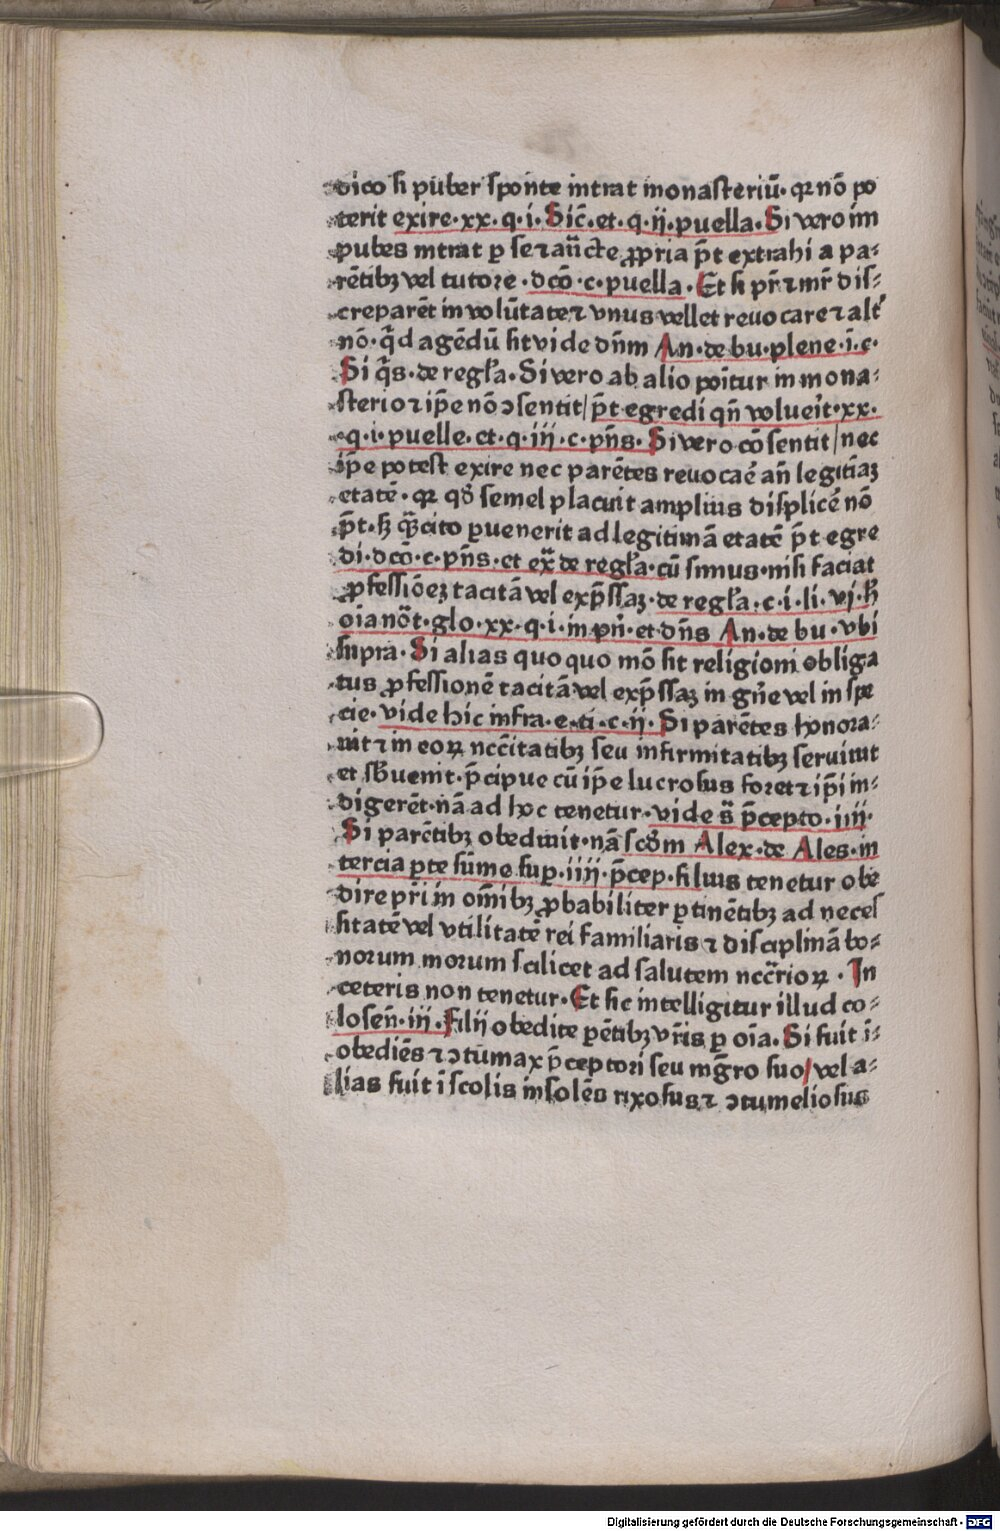 dico si puber sponte intrat monasteriū· qꝛ nō po
terit exire·xx·q·i·Sic̄·et·q·ij·puella·Si vero im
pubes intrat ꝑ se ⁊ auc̄te ꝓpria pt̄ extrahi a pa⸗
rētibꝫ vel tutore·dcō·c·puella·Et si pr̄ ⁊ mr̄ dis⸗
creparēt in volūtate ⁊ vnus vellet reuocare ⁊ alt̓
nō·qͥd agēdū sit vide dn̄m An·de bu·plene·i·c·
Si qͥs·de regl̓a·Si vero ab alio ponit̓ in mona⸗
sterio ⁊ ip̄e nō ↄsentit/pt̄ egredi qn̄ voluerit·xx·
q·i·puelle·et·q·iij·c·pn̄s·Si vero cōsentit/nec
ip̄e potest exire nec parētes reuocaē an̄ legitīaꝫ
etatē·qꝛ qd̓ semel placuit amplius displicē nō
pt̄·sꝫ qͣcito ꝑuenerit ad legitimā etatē pt̄ egre
di·dcō·c·pn̄s·et exͣ de regl̓a·cū simus·nisi faciat
ꝓfessiōeꝫ tacitā vel exp̄ssaꝫ·de regl̓a·c·i·li·vj·hͦ
oīa nōt·glo·xx·q·i·in pn̓·et·dn̄s An·de bu·vbi
supra·Si alias quoquo mō sit religioni obliga
tus ꝓfessionē tacitā vel exp̄ssaꝫ in gn̄e vel in spe
cie·vide hic infra·e·ti·c·ij·Si parētes honora⸗
uit ⁊ in eoꝝ ncc̄itatibꝫ seu infirmitatibꝫ seruiuit
et sb̓uenit·p̄cipue cū ip̄e lucrosus foret ⁊ ip̄i in⸗
digerēt·nā ad hoc tenetur·vide s̄ p̄cepto·iiij·
Si parētibꝫ obediuit·nā scd̓m Alex·de Ales·in
tercia ꝑte sūme suꝑ·iiij·p̄cep·filius tenetur obe
dire pr̄i in om̄ibꝫ ꝓbabiliter ꝑtinētibꝫ ad neces
sitatē vel vtilitatē rei familiaris ⁊ disciplinā bo⸗
norum morum scilicet ad salutem ncc̄rioꝝ·In
ceteris non tenetur·Et sic intelligitur illud co⸗
losen̄·iij·Filij obedite pētibꝫ vr̄is ꝑ oīa·Si fuit ī⸗
obediēs ⁊ ↄtumax p̄ceptori seu mg̓ro suo/vel a⸗
lias fuit ī scolis insolēs rixosus ⁊ ↄtumeliosus
Digitalisierung gefördert durch die Deutsche Forschungsgemeinschaft - DFG